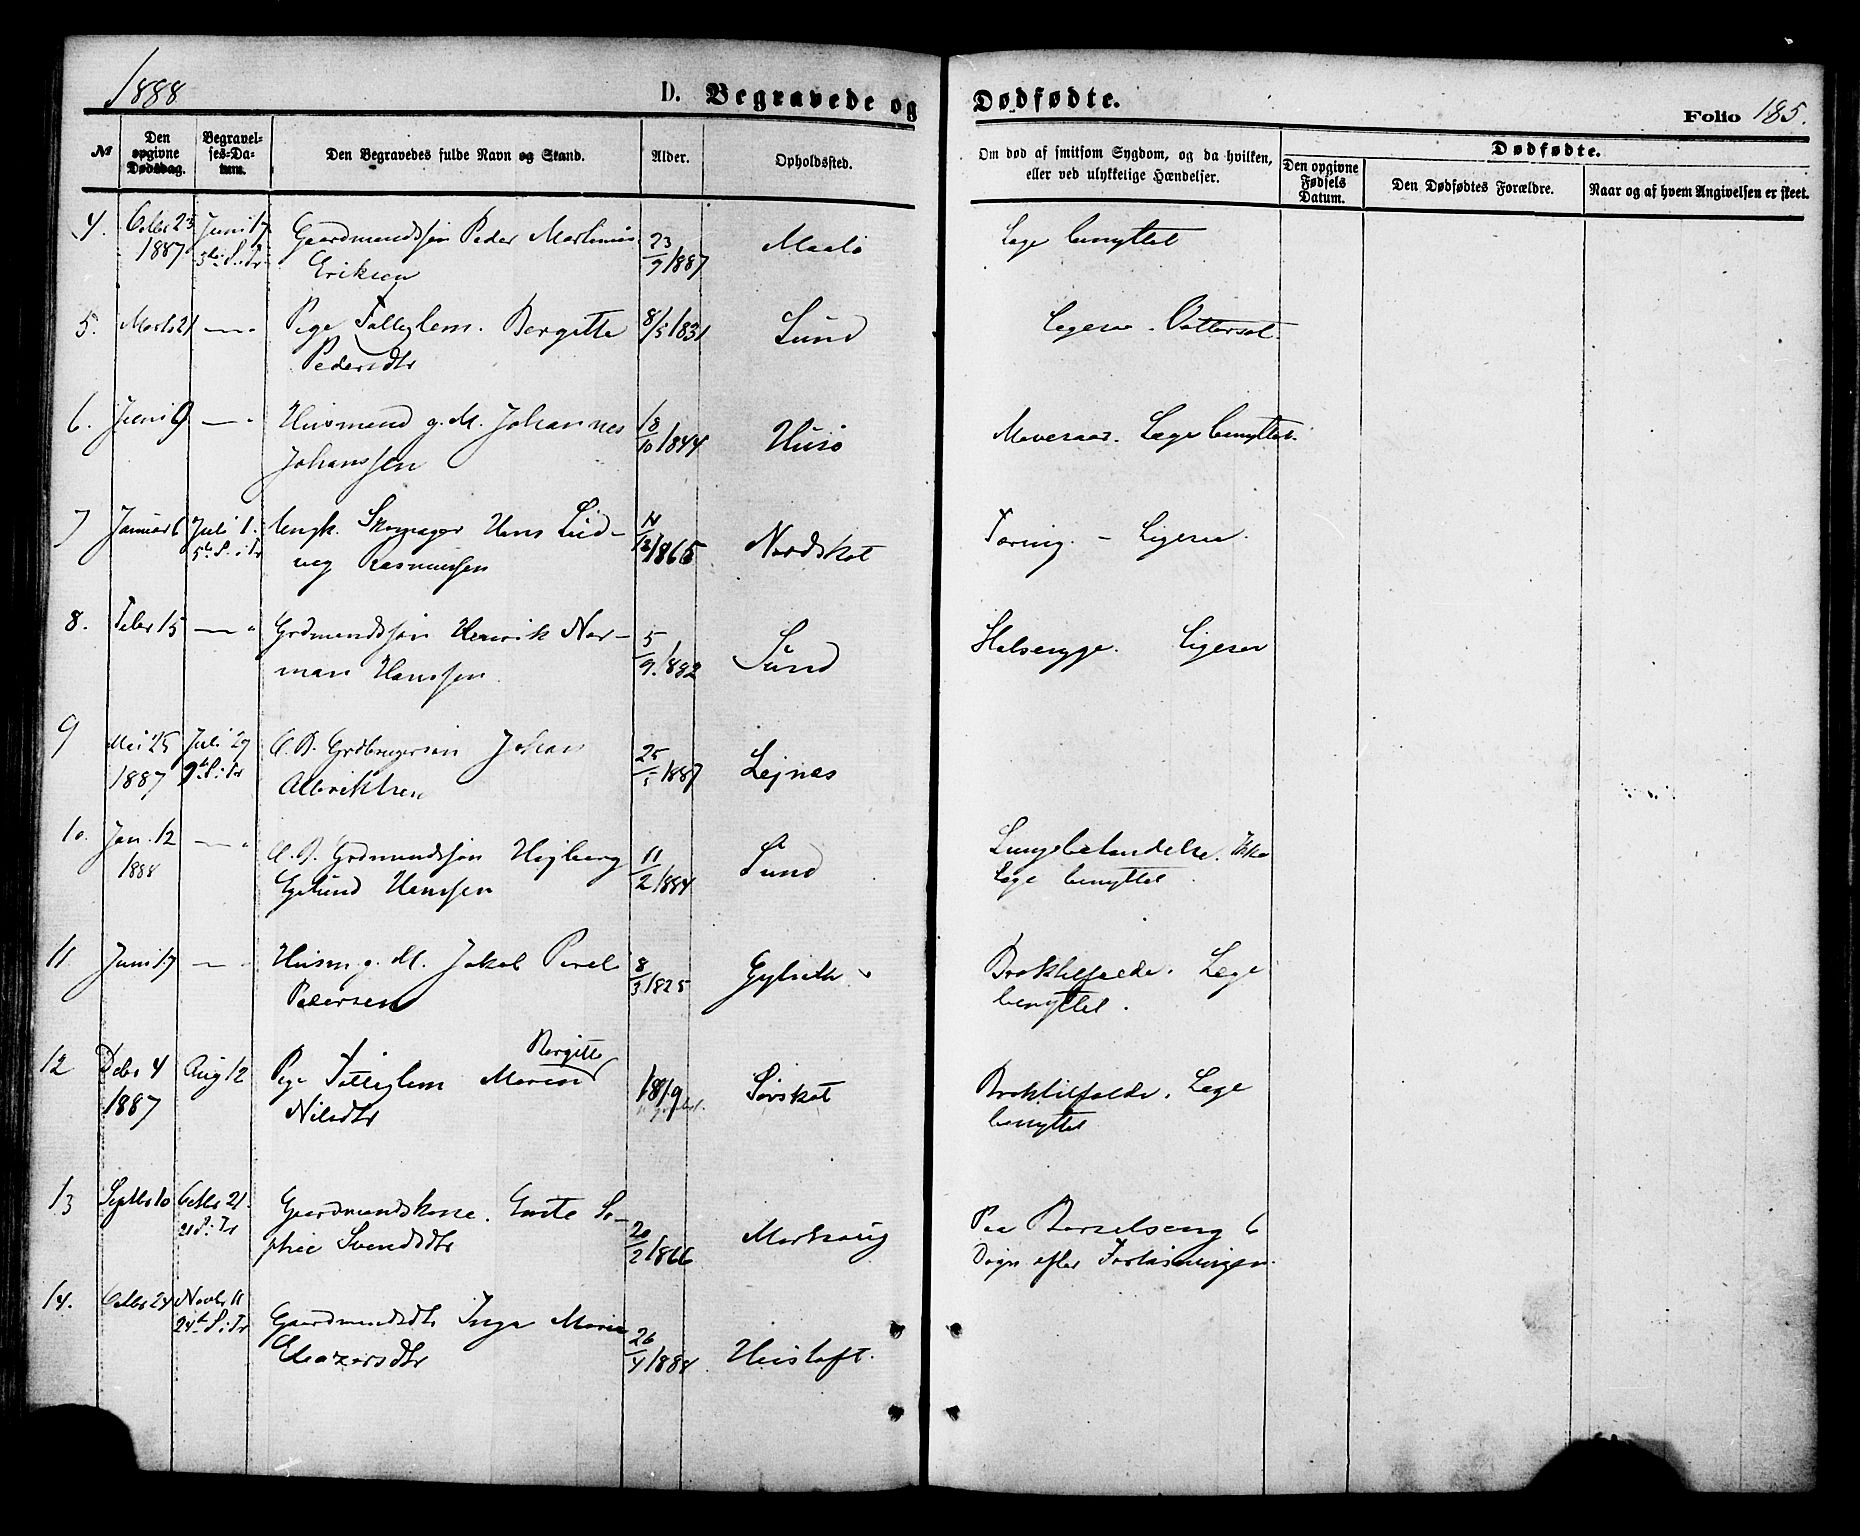 1888
D. Begravede og Dødfødte.
Folio 185.
№
Den opgivne Dødsdag.
Begravelses-Datum.
Den Begravedes fulde Navn og Stand.
Alder.
Opholdssted.
Om død af smitsom Sygdom, og da hvilken, eller ved ulykkelige Hændelser.
Dødfødte.
Den opgivne Fødsels Datum.
Den Dødfødtes Forældre.
Naar og af hvem Angivelsen er skeet.
4. Octbr 23 Juni 17 Gaardmandssøn Peder Martinus 23 Maalø Læge benyttet
1887 Eriksen 9/1887
5. Marts 21 — " Pige Bergitte 8/5 1831 Sund Ligesaa. Vattersot.
Pedersdtr
6. Juni 9 — " Husmand g. M. Johannes 18 Husø Mavesaar. Læge benyttet.
Johanssen 10/1844
7 Januar 6 Juli 1. Ungk. Skomager Hans Lud- Nordskot Tæring. — Ligesaa.
5te S. i Tr vig Rasmussen 1865
8. Febr 15 — " Grdmandssøn Henrik Nor- 5 Sund Halssyge. Ligesaa
man Hanssen 9/1882
9 Mai 25 Juli 29 Johan 25 Lejnes
1887 9de S. i Tr Albriktsen 1887
10. Jan. 12 — " Grdmandssøn Højberg 11 Sund Lungebetændelse. Ikke
1888 Egelund Hanssen 2/1884 Læge benyttet.
11 Juni 17 — " Husm. g. M. Jakob Parel 8 Læge
Pedersen 3/1825 benyttet.
12 Debr 4 Aug 12 Pige Maren Bergitte 1819 Sørskot Læge
1887 Nilsdtr benyttet
13 Septbr 10 Octbr 21 Gaardmandskone. So- 20 Markhaug Paa Barselseng 6
21 S. i Tr phie Svendsdtr 2/1866 Døgn efter Forløsningen.
14. Octbr 24 Novbr 11 Gaardmandsdtr Inga Marie 26 Husloft.
24de S. i Tr Eleazersdtr 4/1888